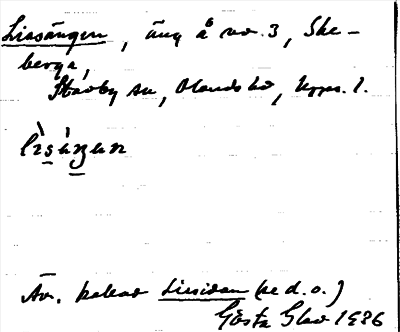 Lissängen, äng å nr. 3, Ske-
berga,
Stavby sn, Olands hd, Upps. l.
Äv. kallad Lissidan (se d. o.)
Gösta Glad 1936